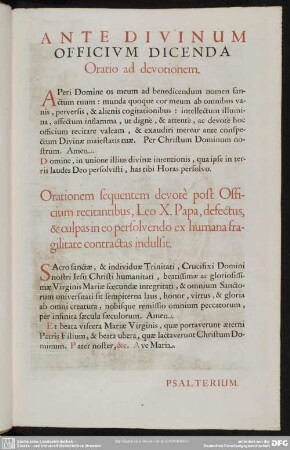 ANTE DIVINUM
OFFICIVM DICENDA
Oratio ad devotionem.
APeri Domine os meum ad benedicendum nomen san-
ctum tuum: munda quoque cor meum ab omnibus va-
nis, perversis, & alienis cogitationibus: intellectum illumi-
na, affectum inflamma, ut dignè, & attentè, ac devotè hoc
officium recitare valeam, & exaudiri merear ante conspe-
ctum Divinæ maiestatis tuæ. Per Christum Dominum no-
strum. Amen.
Domine, in unione illius divinæ intentionis, qua ipse in ter-
ris laudes Deo persolvisti, has tibi Horas persolvo.
Orationem sequentem devotè post Offi-
cium recitantibus, Leo X. Papa, defectus,
& culpas in eo persolvendo ex humana fra-
gilitate contractas indulsit.
SAcrosanctæ, & individuæ Trinitati, Crucifixi Domini
nostri Iesu Christi humanitati, beatissimæ ac gloriosissi-
mæ Virginis Mariæ fœcundæ integritati, & omnium Sancto-
rum universitati sit sempiterna laus, honor, virtus, & gloria
ab omni creatura, nobisque remissio omnium peccatorum,
per infinita sæcula sæculorum. Amen.
Et beata viscera Mariæ Virginis, quæ portaverunt æterni
Patris Filium, & beata ubera, quæ lactaverunt Christum Do-
minum. Pater noster, &c. Ave Maria.
PSALTERIUM.